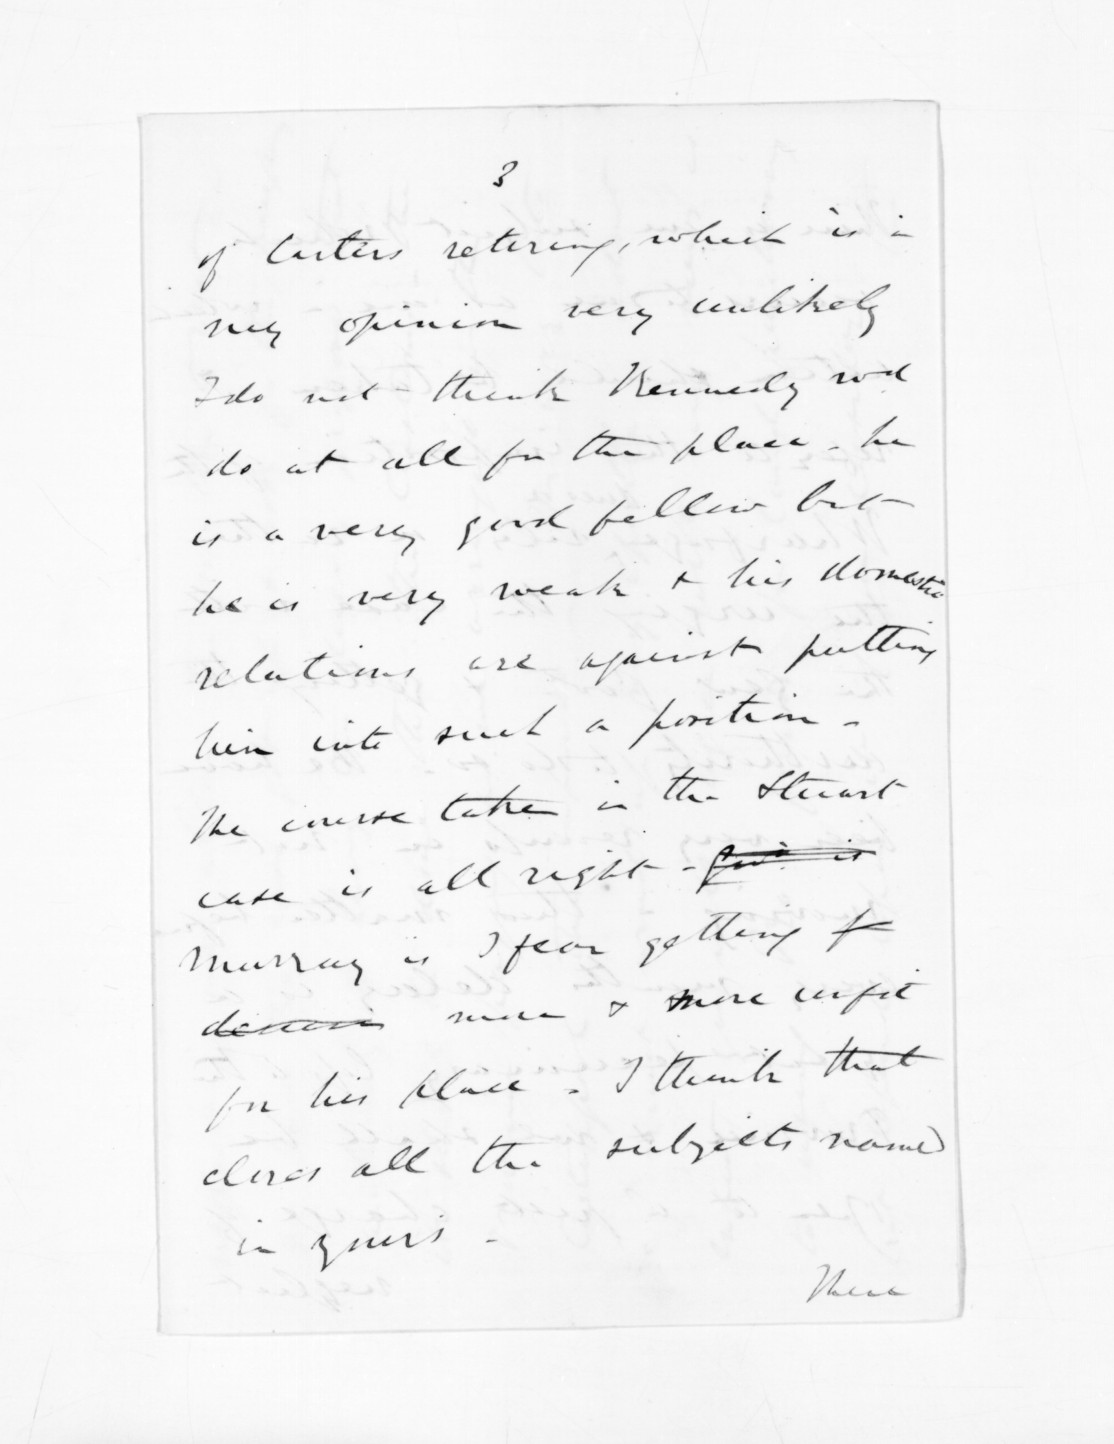 3
of Carters retiring, which is in
my opinion very unlikely
I do not think Kennedy wd
do at all for the place - he
is a very good fellow but
he is very weak & his domestic
relations are against putting
him into such a position -
The course taken in the Stuart
case is all right - is
Murray is I fear getting
more & more unfit
for his place - I think that
closes all the subjects named
in yours -
There